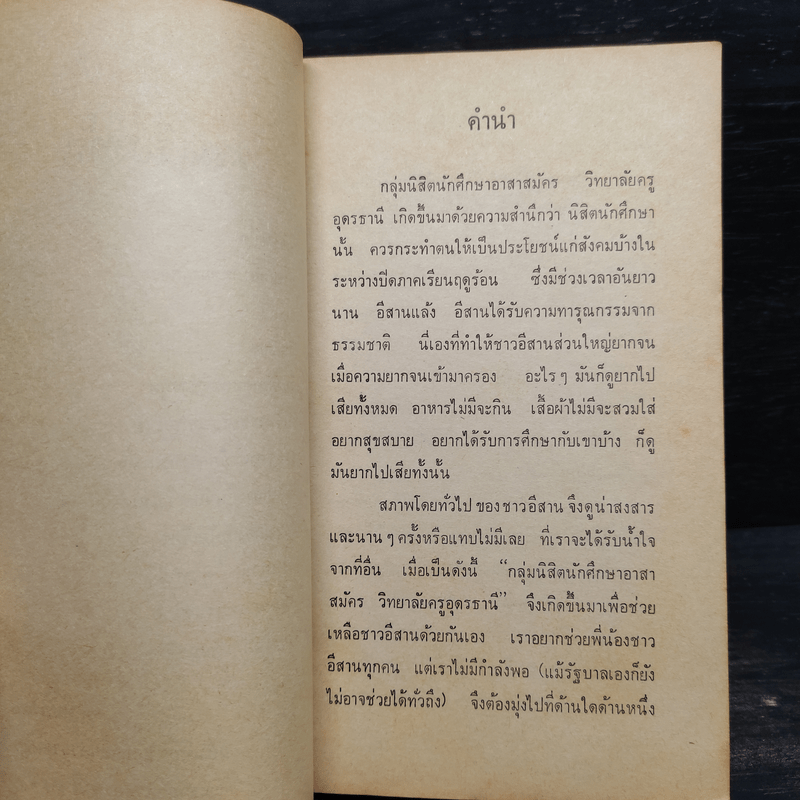 คำนำ
กลุ่มนิสิตนักศึกษาอาสาสมัคร วิทยาลัยครู
อุดรธานี เกิดขึ้นมาด้วยความสำนึกว่า นิสิตนักศึกษา
นั้น ควรกระทำตนให้เป็นประโยชน์แก่สังคมบ้างใน
ระหว่างปิดภาคเรียนฤดูร้อน ซึ่งมีช่วงเวลาอันยาว
นาน อีสานแล้ง อีสานได้รับความทารุณกรรมจาก
ธรรมชาติ นี่เองที่ทำให้ชาวอีสานส่วนใหญ่ยากจน
เมื่อความยากจนเข้ามาครอง อะไร ๆ มันก็ดูยากไป
เสียทั้งหมด อาหารไม่มีจะกิน เสื้อผ้าไม่มีจะสวมใส่
อยากสุขสบาย อยากได้รับการศึกษากับเขาบ้าง ก็ดู
มันยากไปเสียทั้งนั้น
สภาพโดยทั่วไป ของชาวอีสาน จึงดูน่าสงสาร
และนาน ๆ ครั้งหรือแทบไม่มีเลย ที่เราจะได้รับน้ำใจ
จากที่อื่น เมื่อเป็นดังนี้ “กลุ่มนิสิตนักศึกษาอาสา
สมัคร วิทยาลัยครูอุดรธานี” จึงเกิดขึ้นมาเพื่อช่วย
เหลือชาวอีสานด้วยกันเอง เราอยากช่วยพี่น้องชาว
อีสานทุกคน แต่เราไม่มีกำลังพอ (แม้รัฐบาลเองก็ยัง
ไม่อาจช่วยได้ทั่วถึง) จึงต้องมุ่งไปที่ด้านใดด้านหนึ่ง